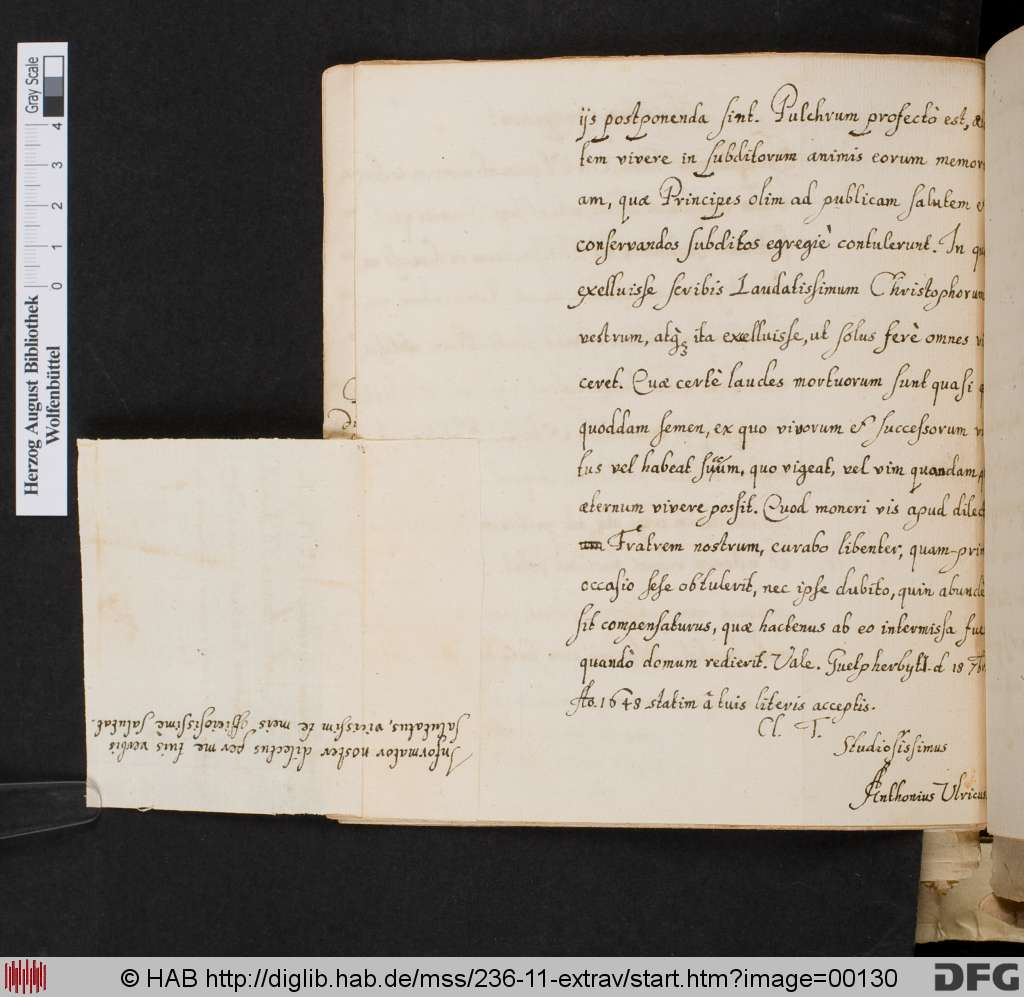 ijs postponenda sint. Pulchrum profectò est, æ
tem vivere in subditorum animis eorum memori
am, quæ Principes olim ad publicam salutem e
conservandos subditos egregiè contulerunt. In qu
exelluisse scribis Laudatissimum Christophorum
vestrum, atq̀ꝫ ita exelluisse, ut solus ferè omnes vi
ceret. Quæ certè laudes mortuorum sunt quasi
quoddam semen, ex quo vivorum et successorum vi
tus vel habeat, quo vigeat, vel vim quandam
æternum vivere possit. Quod moneri vis apud dilect
Fratrem nostrum, curabo libenter, quam-prim
occasio sese obtulerit, nec ipse dubito, quin abunde
sit compensaturus, quæ hactenus ab eo intermissa fue
quandò domum redierit. Vale. Guelpherbyti. d 18
Ao. 1648 statim â tuis literis acceptis.
Cl. T.
Studiosissimus
Anthonius Ulricus
Informator noster dilectus per me tuis verbis
salutatus, vicissim te meis officiosissimè salutat.
Herzog August Bibliothek
Wolfenbüttel
Gray Scale
0 1 2 3 4
© HAB http://diglib.hab.de/mss/236-11-extrav/start.htm?image=00130
DFG